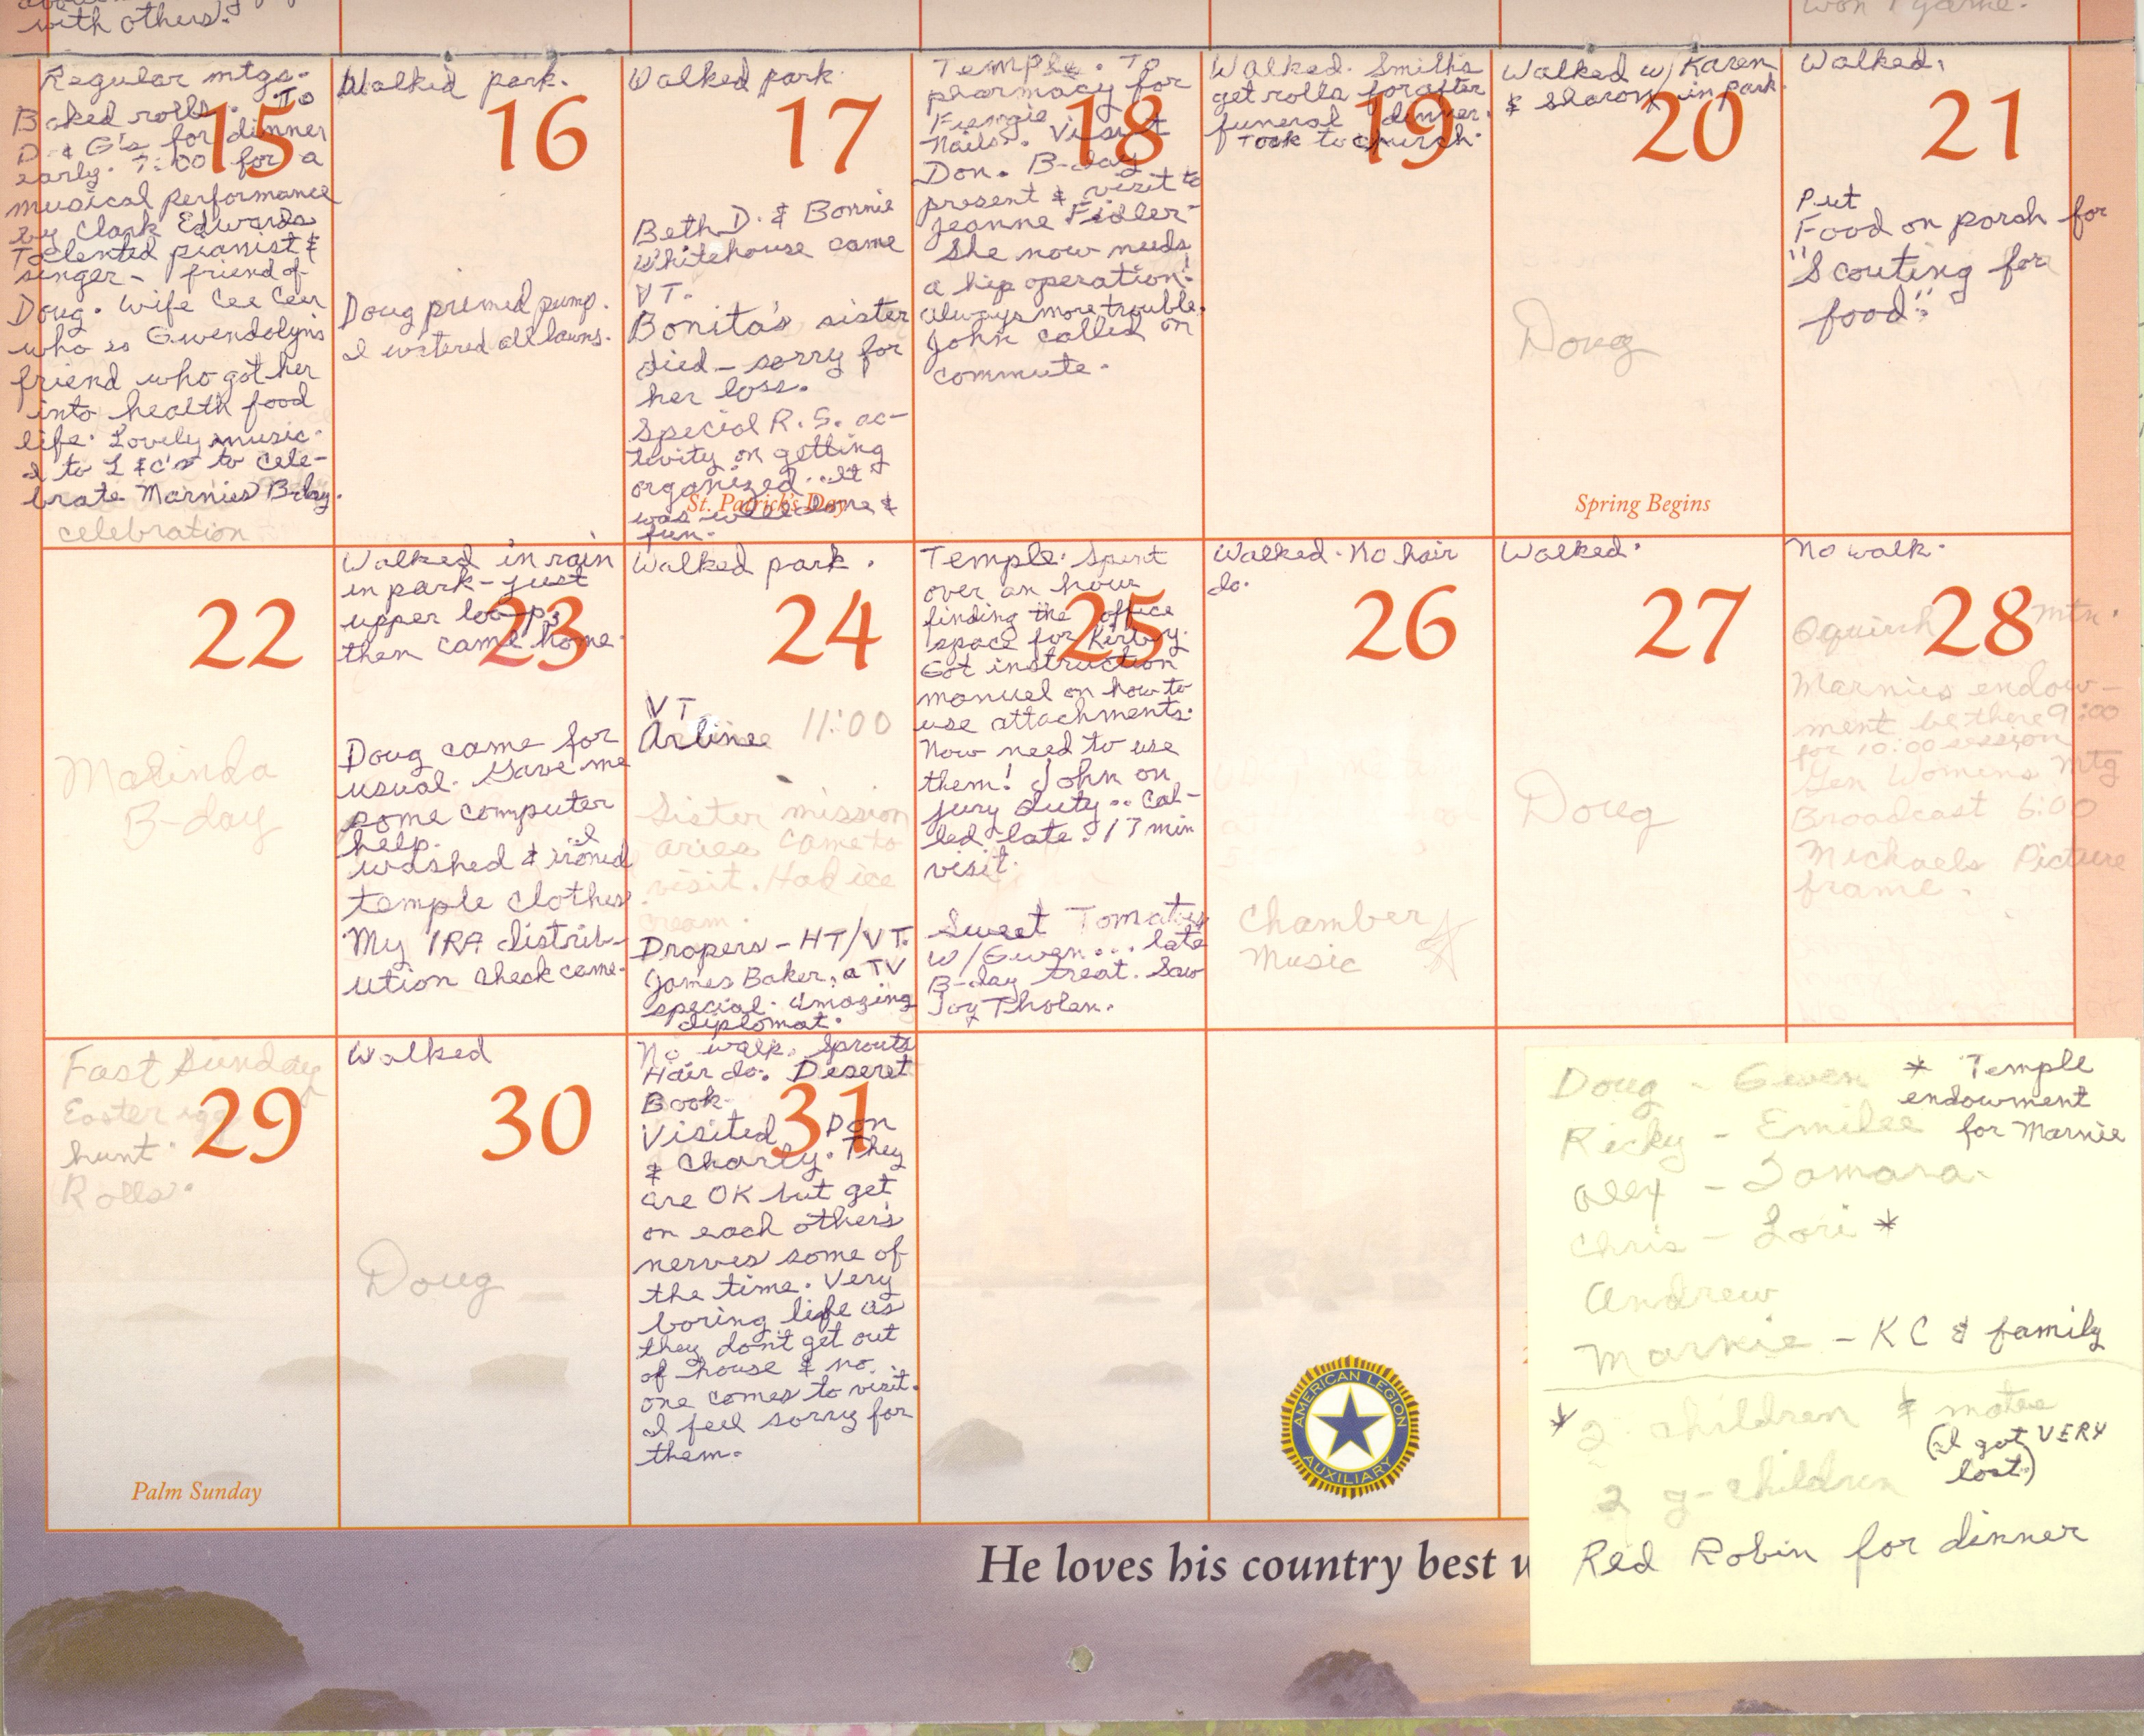 with others.
won 1 game.
Regular mtgs.
Baked rolls. To
D. & G's for dinner
early. 7:00 for a
musical performance
by Clark Edwards
Talented pianist &
singer - friend of
Doug. Wife Cee Cee
who is Gwendolyn's
friend who got her
into health food
life. Lovely music.
I to L & C's to cele-
brate Marnies B-day.
celebration
15
Walked park.
16
Doug primed pump.
I watered all lawns.
Walked park.
17
Beth D. & Bonnie
Whitehouse came
VT.
Bonita's sister
died - sorry for
her loss.
Special R. S. ac-
tivity on getting
organized... It
was well done &
fun.
St. Patrick's Day
Temple. To
pharmacy for
Fungie
Nails. Visit
Don. B-day
present & visit to
Jeanne Fidler-
She now needs
a hip operation!
Always more trouble.
John called on
commute.
18
Walked. Smiths
get rolls for after
funeral dinner.
Took to church.
19
Walked w/ Karen
& Sharon in park.
20
Doug
Spring Begins
Walked.
21
Put
Food on porch for
"Scouting for
food."
22
Malinda
B-day
Walked in rain
in park - just
upper loop,
then came home.
23
Doug came for
usual. Gave me
some computer
help. I
washed & ironed
temple clothes
My IRA distrib-
ution check came.
Walked park.
24
VT
Arlinee 11:00
Sister mission
aries came to
visit. Had ice
cream.
Drapers - HT/VT.
James Baker, a TV
special. Amazing
diplomat.
Temple. Spent
over an hour
finding the office
space for Kirby.
Got instruction
manuel on how to
use attachments.
Now need to use
them! John on
jury duty.. Cal-
led late. 17 min
visit.
25
Sweet Tomatoes
w/Gwen... late
B-day treat. Saw
Joy Tholen.
Walked. No hair
do.
26
Chamber
Music
Walked.
27
Doug
No walk.
28
Oquirrh Mtn.
Marnies endow-
ment be there 9:00
for 10:00 session
Gen Womens Mtg
Broadcast 6:00
Michaels Picture
frame.
Fast Sunday
Easter egg
hunt.
Rolls.
29
Palm Sunday
Walked
30
Doug
No walk. Sprouts
Hair do. Deseret
Book.
31
Visited Don
& Charly. They
are OK but get
on each other's
nerves some of
the time. Very
boring life as
they don't get out
of house & no
one comes to visit.
I feel sorry for
them.
AMERICAN LEGION
AUXILIARY
He loves his country best
Doug - Gwen
* Temple
endowment
for Marnie
Ricky - Emilee
Alex - Tamara
Chris - Lori *
Andrew
Marnie - KC & family
* 2 children & mates
(I got VERY
lost.)
2 g-children
Red Robin for dinner